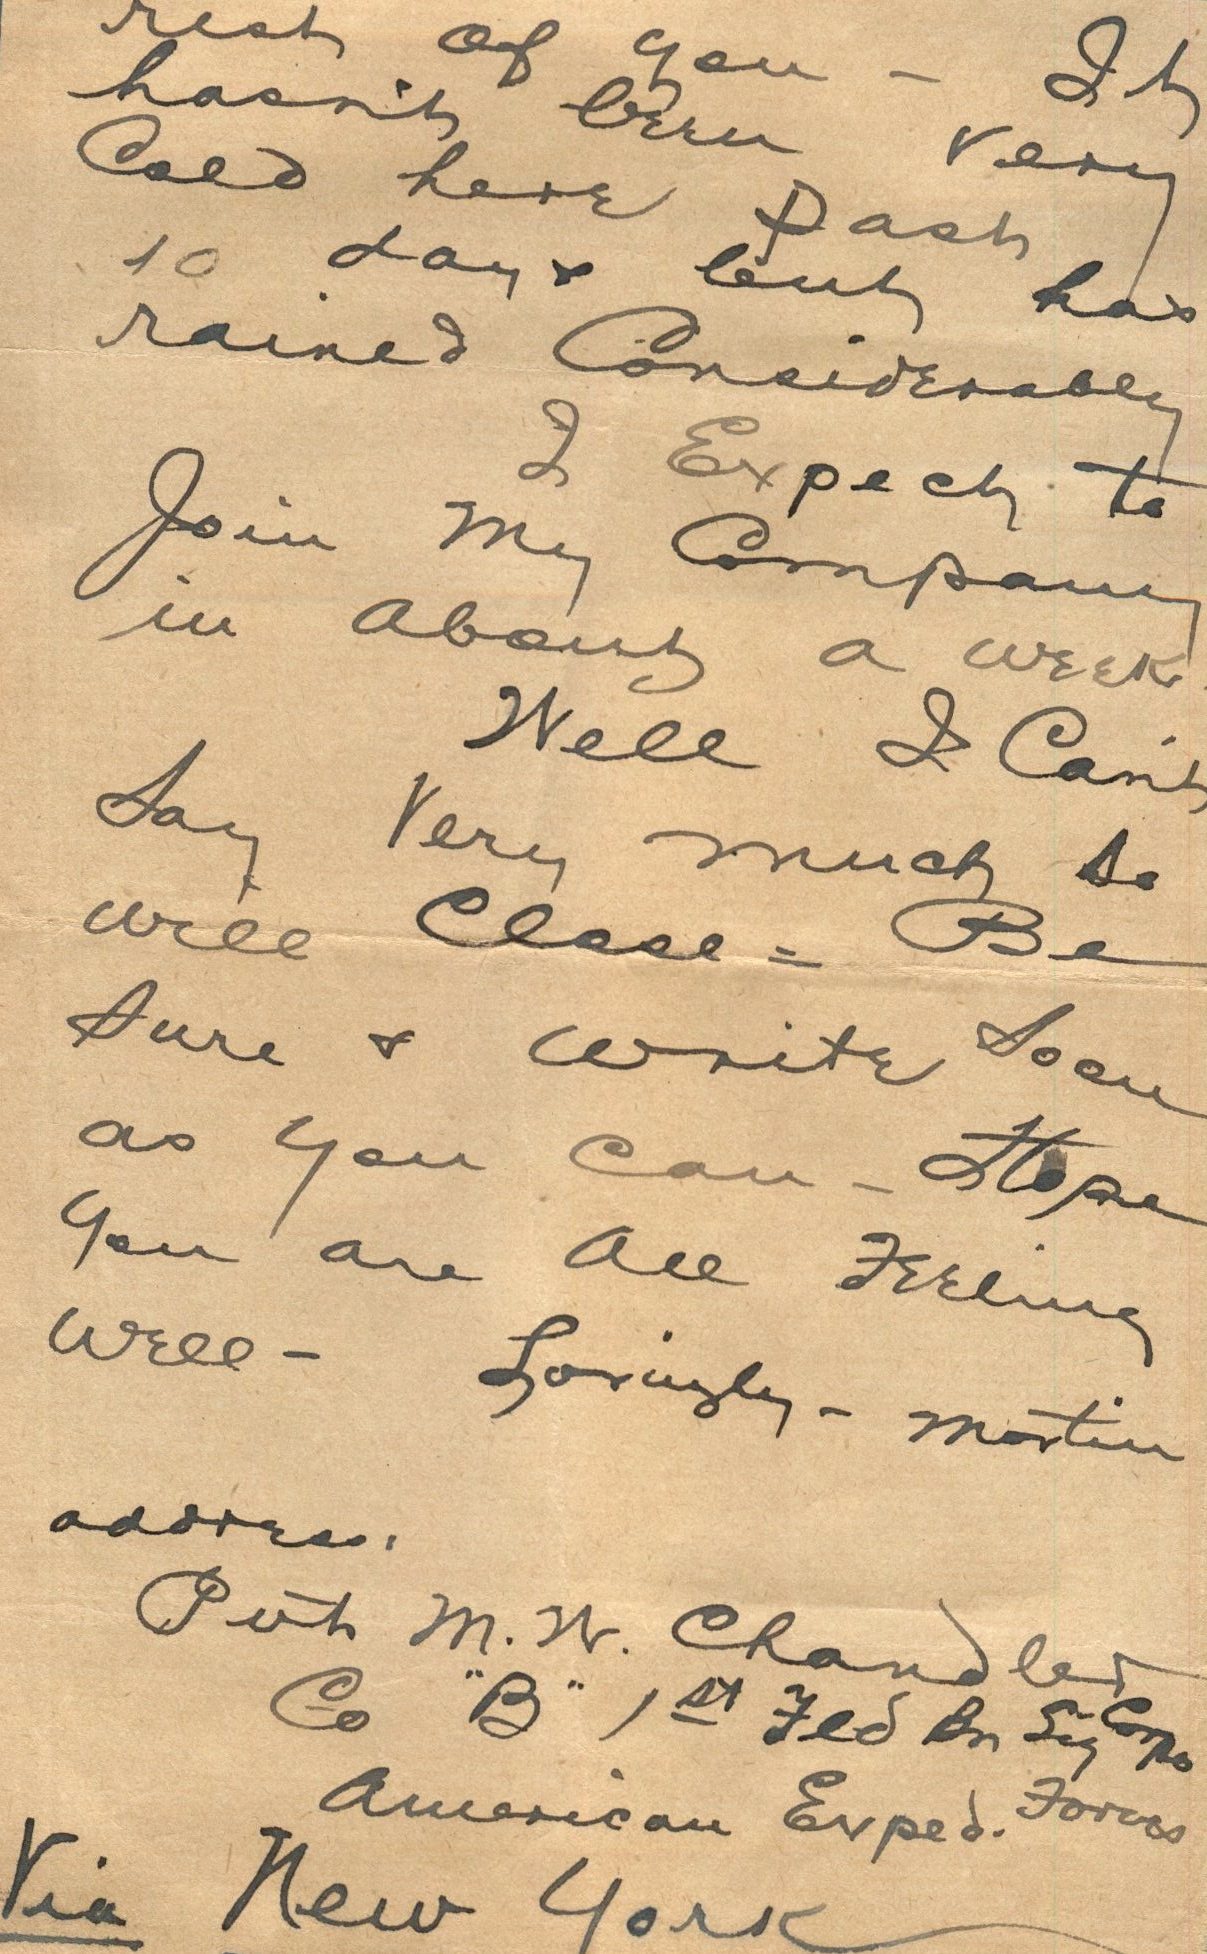 rest of you - It
hasn't been very
Cold here past
10 days but has
rained Considerably
I Expect to
Join My Company
in About a week.
Well I Can't
Say Very much so
will Close = Be
Sure & write Soon
as you can - Hope
you are All Feeling
well - Lovingly - Martin
address.
Pvt M. W. Chandler
Co "B" 1st Fld Bn Sig Corps
American Exped. Forces
Via New York